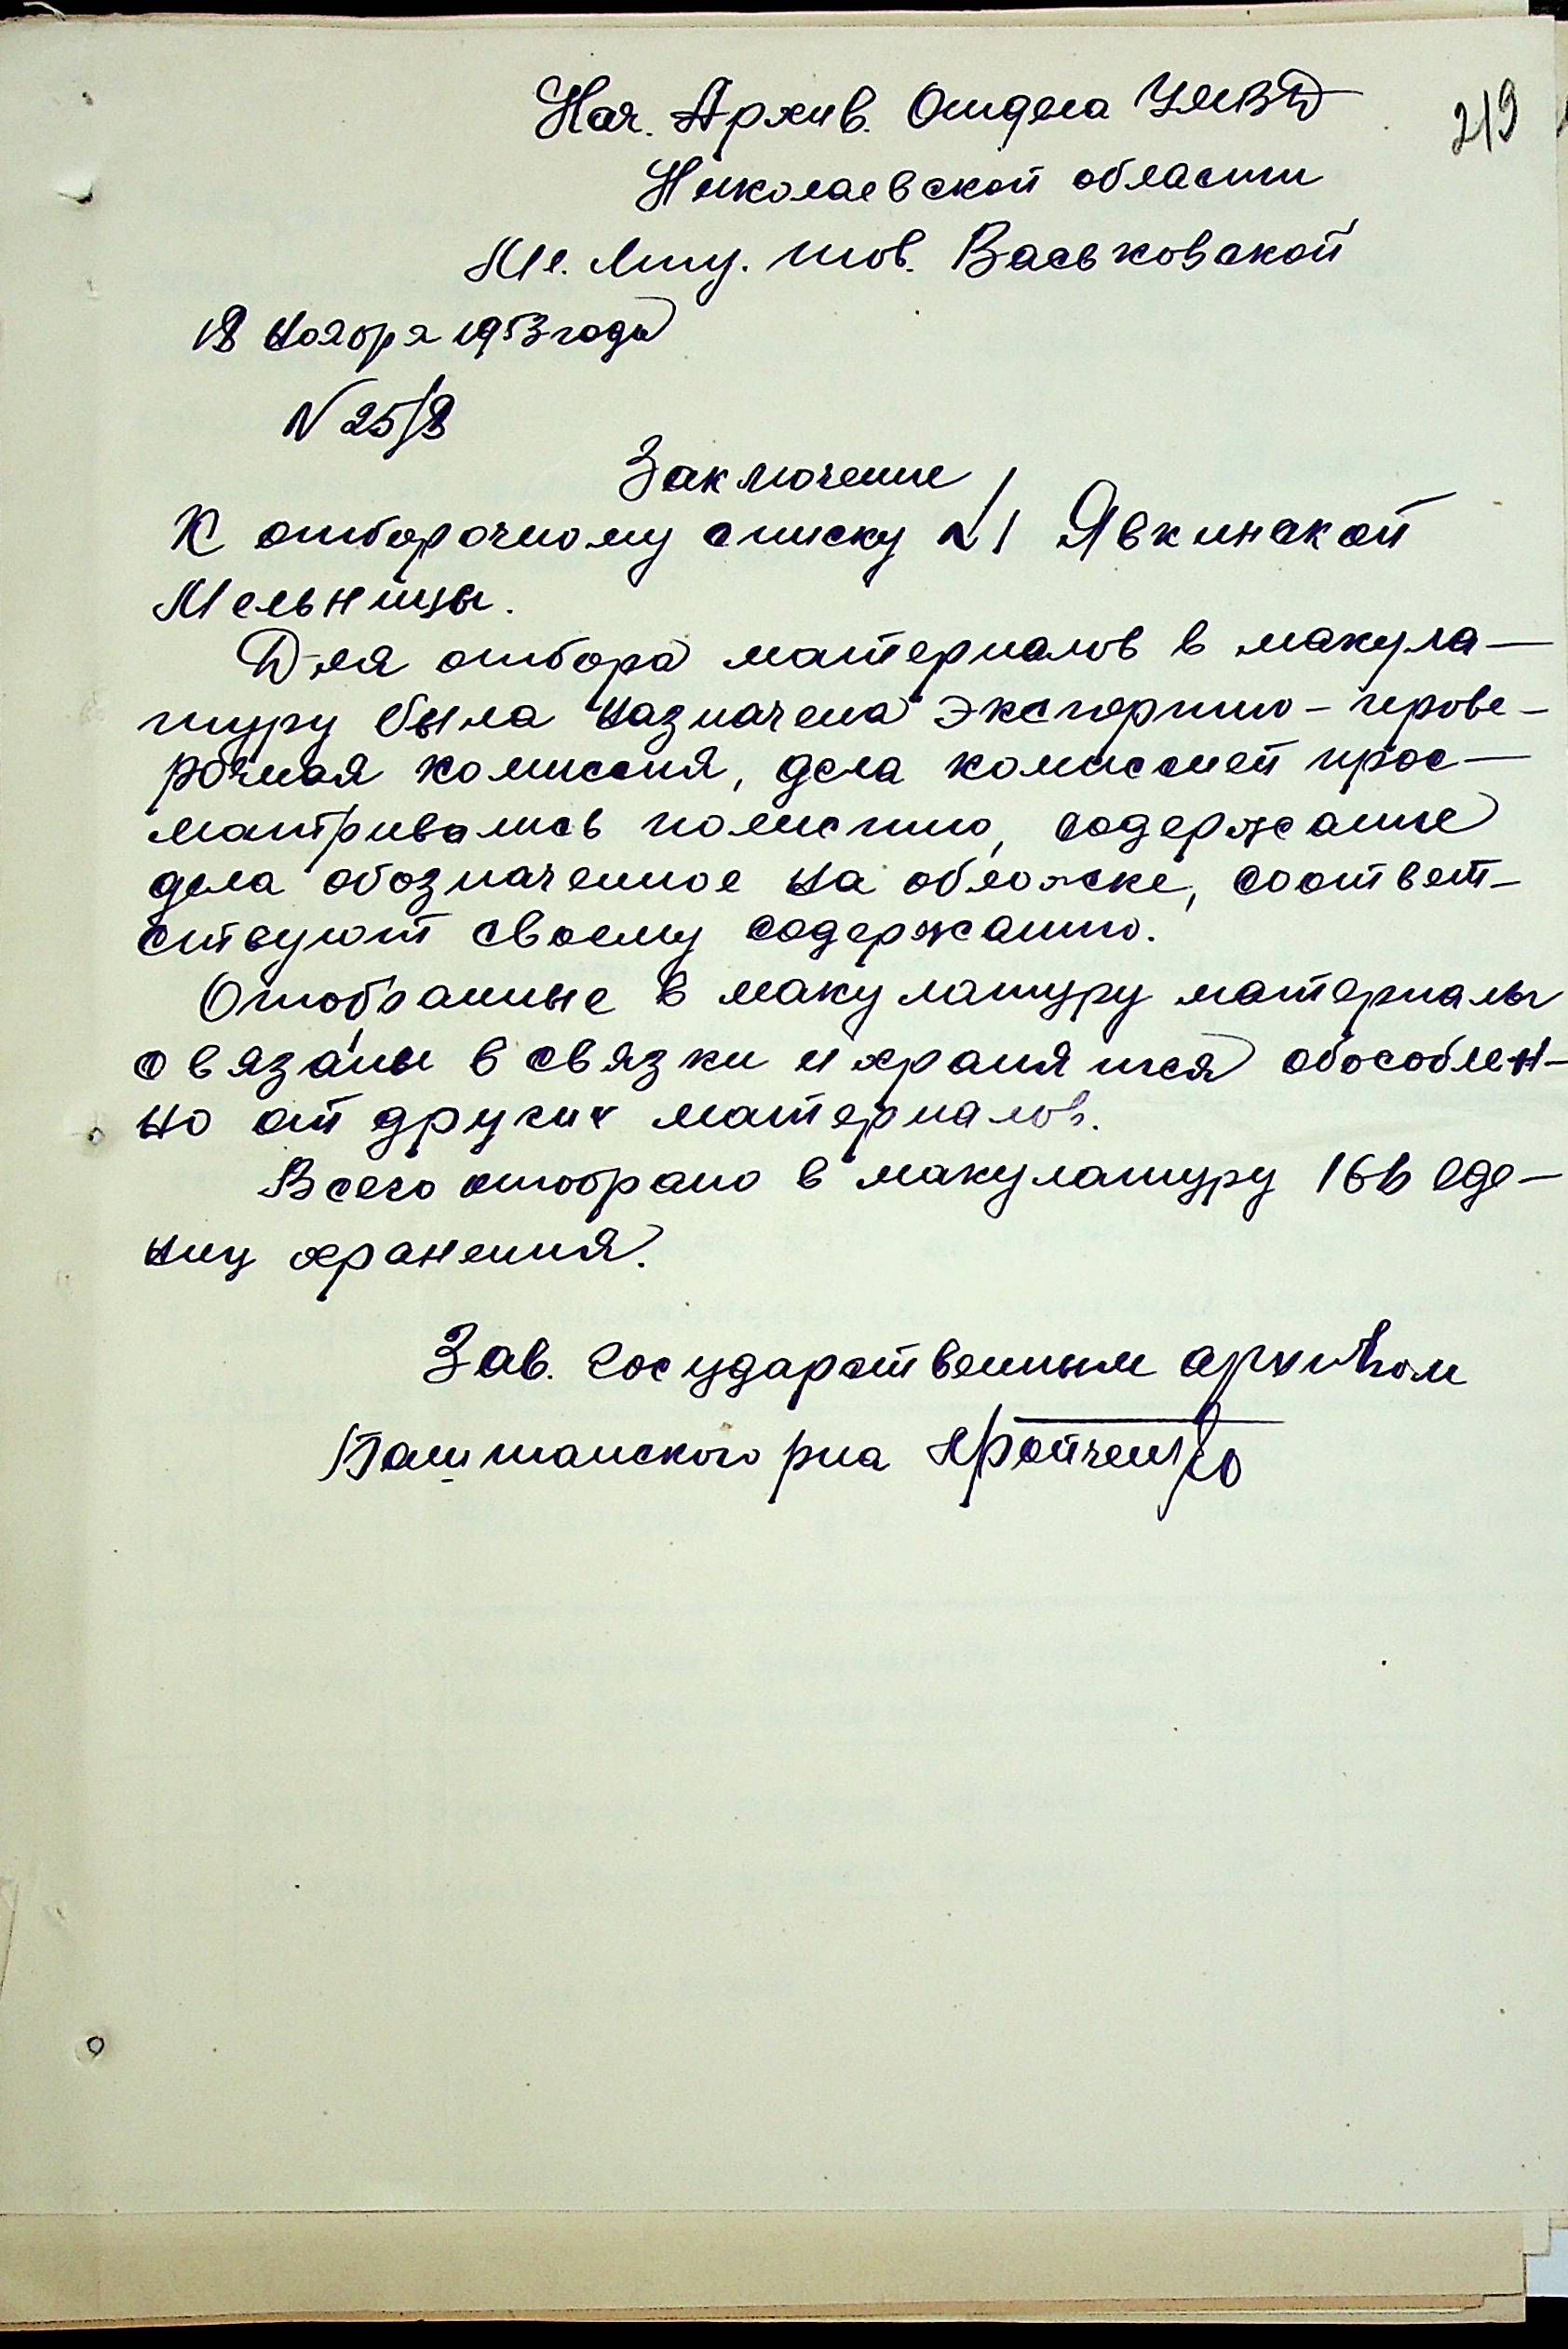 219
Нач. Архив. Отдела УМВД
Николаевской области
Мл. Лит. тов. Васьковской
18 ноября 1953 года
N 25/8
Заключение
К отборочному списку №1 Явкинской
Мельницы.
Для отбора материалов в макула-
туру была назначена экспертно-прове-
рочная комиссия, дела комиссией прос-
матривались полистно, содержание
дела обозначенное на обложке, соответ-
ствуют своему содержанию.
Отобранные в макулатуру материалы
связаны в связки и хранятся обособлен-
но от других материалов.
Всего отобрано в макулатуру 166 еде-
ниц хранения.
Зав. Государственным архивом
Баштанского р-на